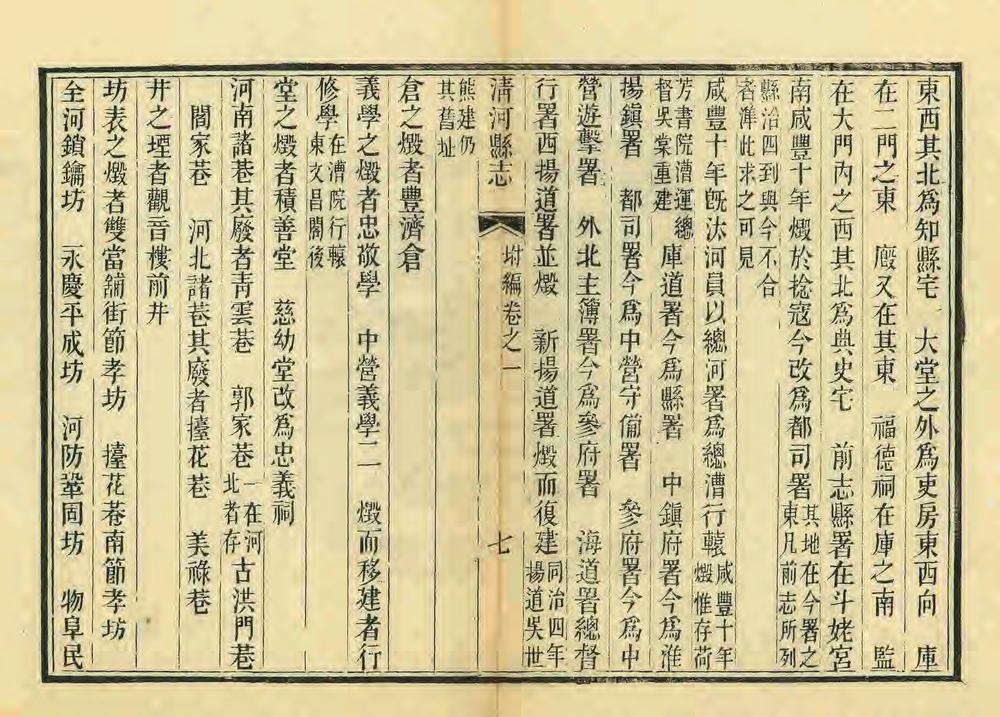 東西其北爲知縣宅　大堂之外爲吏房東西向　庫
在二門之東　廄又在其東　福德祠在庫之南　監
在大門內之西其北爲典史宅　前志縣署在斗姥宮
南咸豐十年燬於捻寇今改爲都司署其地在今署之東凡前志所列
縣治四到與今不合者準此求之可見
咸豐十年旣汰河員以總河署爲總漕行轅咸豐十年燬惟存荷
芳書院漕運總督吳棠重建　庫道署今爲縣署　中鎭府署今爲淮
揚鎭署　都司署今爲中營守備署　參府署今爲中
營遊擊署　外北主簿署今爲參府署　海道署總督
行署西揚道署並燬　新揚道署燬而復建同治四年揚道吳世
清河縣志　坿編卷之一　七
熊建仍其舊址
倉之燬者豐濟倉
義學之燬者忠敬學　中營義學二　燬而移建者行
修學在漕院行轅東文昌閣後
堂之燬者積善堂　慈幼堂改爲忠義祠
河南諸巷其廢者靑雲巷　郭家巷一在河北者存古洪門巷
閻家巷　河北諸巷其廢者擡花巷　美祿巷
井之堙者觀音樓前井
坊表之燬者雙當舖街節孝坊　擡花巷南節孝坊
全河鎖鑰坊　永慶平成坊　河防鞏固坊　物阜民